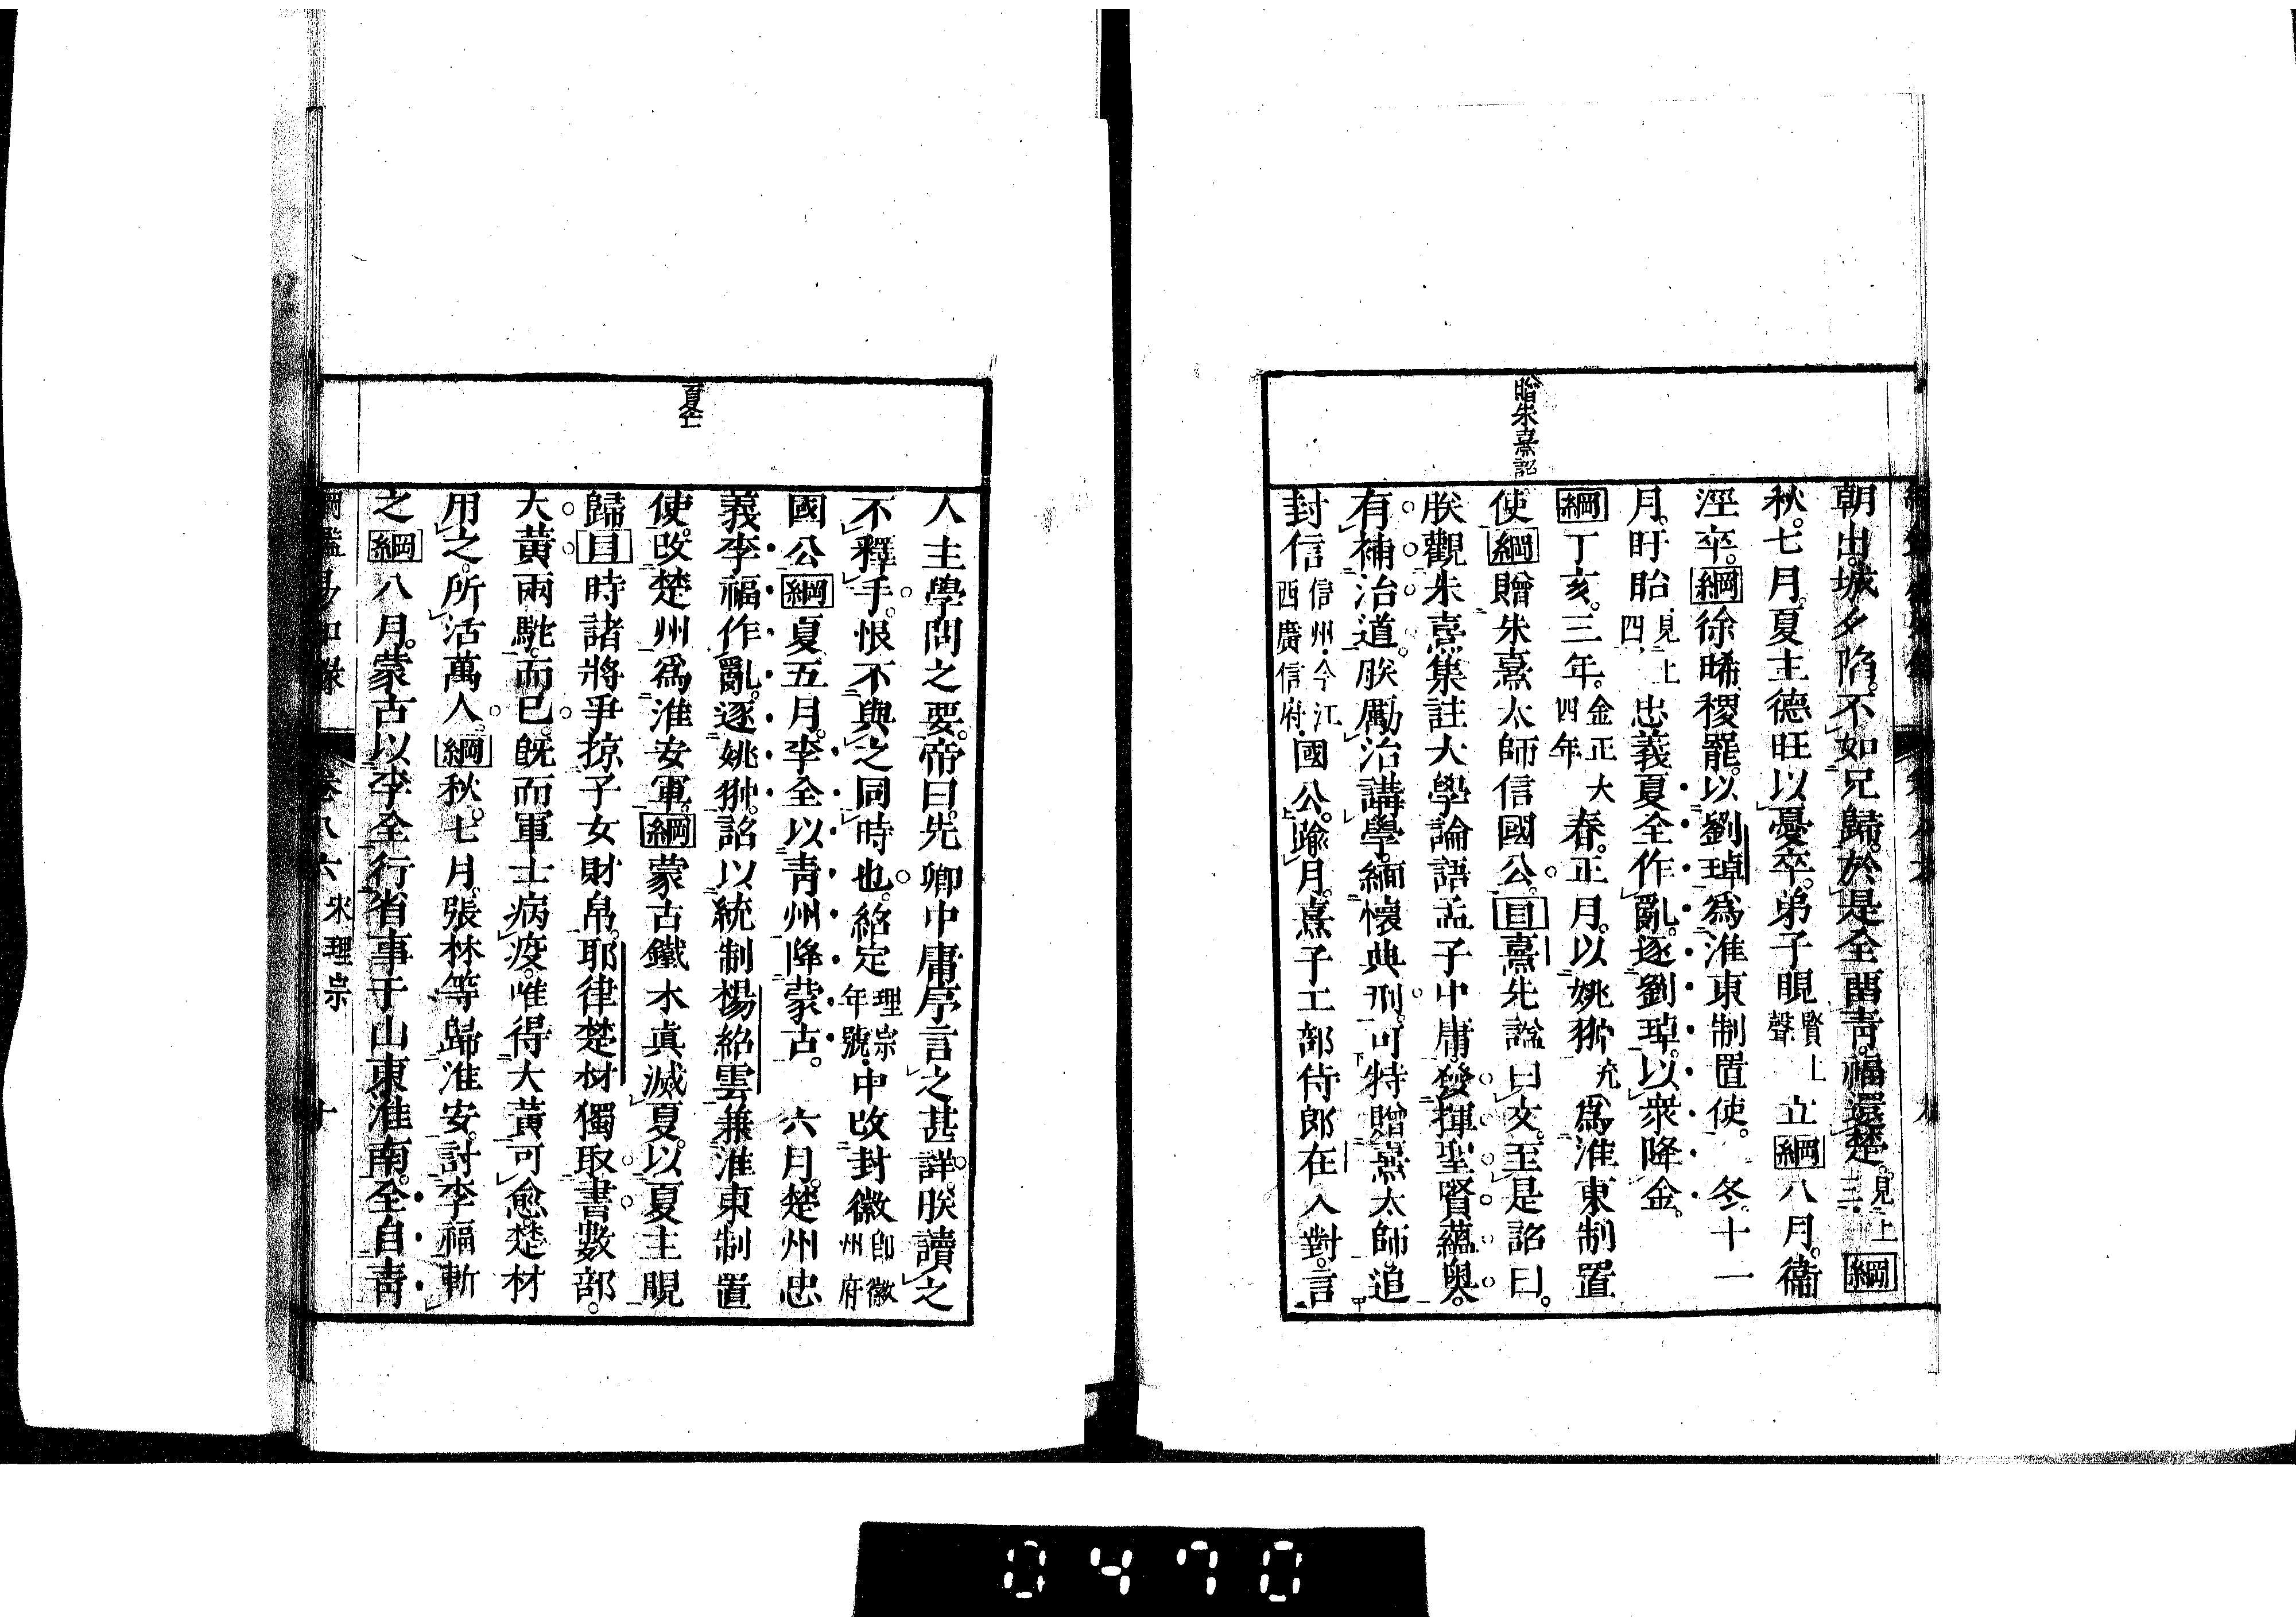 贈朱熹詔
朝出。城夕陷。不如兄歸。於是全留青。福還楚。見上三綱
秋。七月。夏主德旺以憂卒。弟子晛賢上聲立綱八月。衞
涇卒。綱徐晞稷罷。以劉琸爲淮東制置使。冬。十一
月。盱眙見上四忠義夏全作亂。逐劉琸。以衆降金。
綱丁亥。三年。金正大四年春。正月。以姚翀充爲淮東制置
使綱贈朱熹太師信國公。目熹先諡曰文。至是詔曰。
朕觀朱熹集註大學論語孟子中庸。發揮聖賢蘊奧。
有補治道。朕勵治講學。緬懷典刑。可特贈熹太師。追
封信信州今江西廣信府國公。踰月。熹子工部侍郎在入對。言
夏亡
人主學問之要。帝曰。先卿中庸序言之甚詳。朕讀之
不釋手。恨不與之同時也。紹定理宗年號中改封徽卽徽州府
國公綱夏五月。李全以青州降蒙古。六月。楚州忠
義李福作亂。逐姚翀。詔以統制楊紹雲兼淮東制置
使。改楚州爲淮安軍。綱蒙古鐵木眞滅夏。以夏主晛
歸目時諸將爭掠子女財帛。耶律楚材獨取書數部。
大黃兩駝。而已。旣而軍士病疫。唯得大黃可愈楚材
用之。所活萬人。綱秋。七月。張林等歸淮安。討李福斬
之綱八月。蒙古以李全行省事于山東淮南。全自青
綱鑑易知錄 卷八六 宋理宗 十
0470